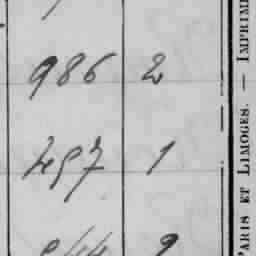 986 2
497 1
PARIS ET LIMOGES. — IMPRIM